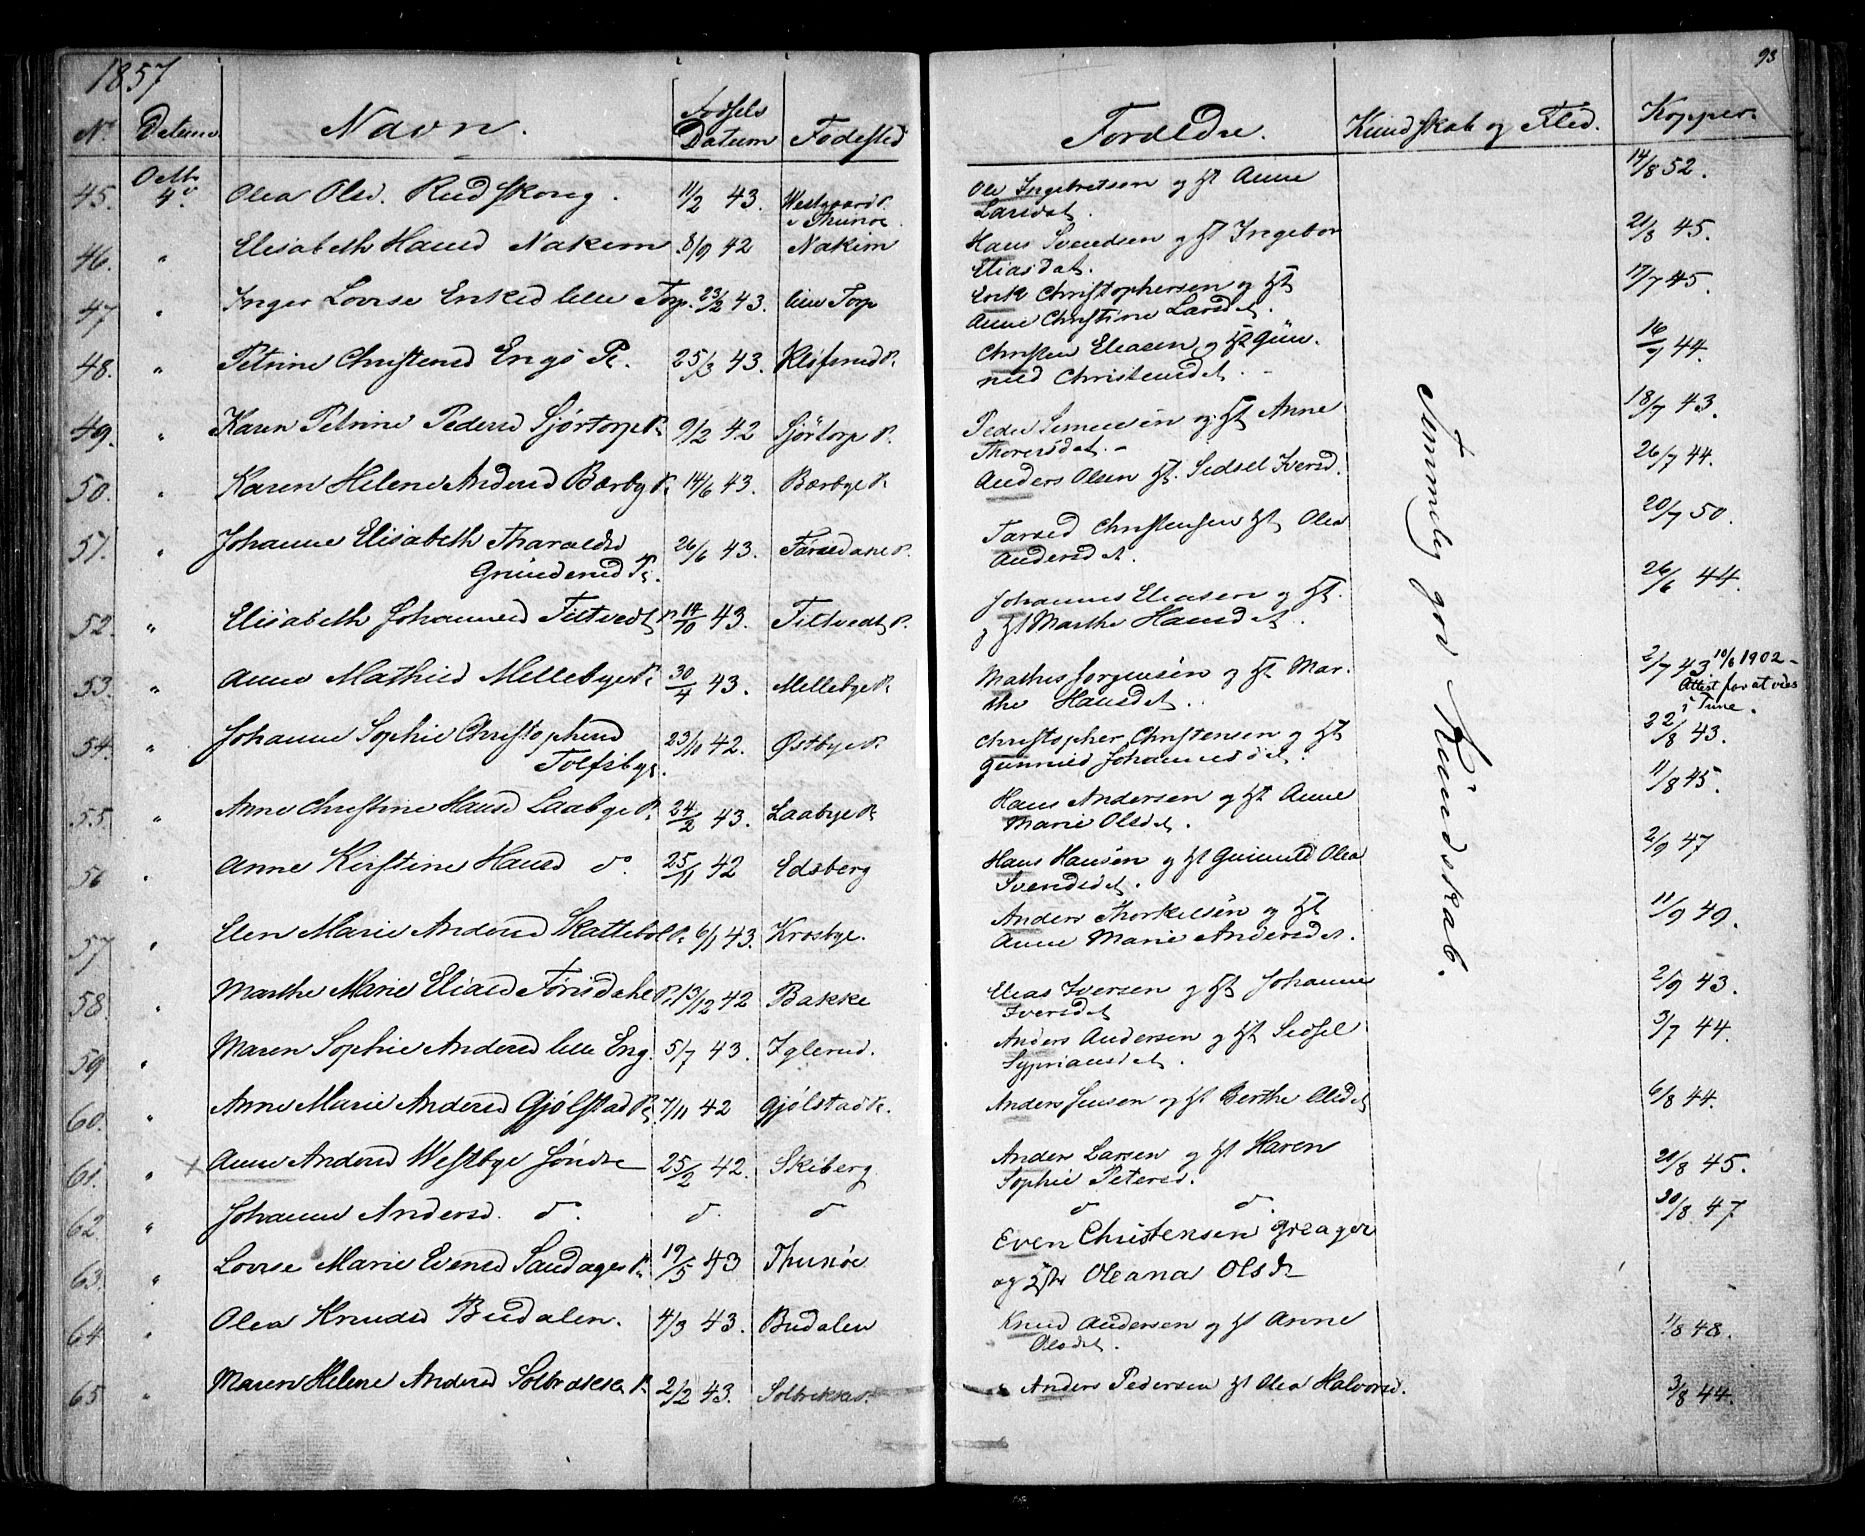 1857
93
No. Datum Navn. Fødsels Datum Fødested Foreldre. Kundskab og Flid. Kopper.
45. Octbr 4de Olea Olsd. Rudskoug. 11/2 43. Westgaard P. i Thunøe Ole Ingebretsen og Hst Anne 14/8 52.
Larsdat.
46. " Elisabeth Hansd Nakim 8/9 42 Nakim Hans Svendsen og Hst Ingebor 21/8 45.
Eliasdat.
47 " Inger Lovise Eriksd lille Torp. 23/2 43. lille Torp Erik Christophersen og Hst 17/7 45.
Anne Christine Larsdat.
48. " Petrine Christensd Engs P. 25/3 43. Kløfsrud P. Christen Eliasen og Hst Gün- 16/7 44.
nild Christensdat.
49. " Karen Petrine Pedersd Sjørtorp P. 9/2 42 Sjörtorp P. Peder Simensen og Hst Anne 18/7 43.
Thoresdat.
50. " Karen Helene Andersd Bærby P. 14/6 43. Bærbye P. Anders Olsen Hst. Sidsel Iversd. 26/7 44.
51. " Johanne Elisabeth Tharaldsd 26/6 43. Christensen Hst Olea 20/7 50.
Andersdat.
52. " Elisabeth Johannesd Tiltvedt P. 14/10 43. Tiltvedt P. Johannes Eliasen og Hst. 26/6 44.
og Hst Marthe Hansdat.
53. " Anne Mathisd Mellebye P. 30/4 43. Mellebye P. Mathis Jørgensen og Hst Mar- 2/7 43. 10/6 1902 -
the Hansdat. Attest for at vies
i Tune.
54. " Johanne Sophie Christophersd 23/10 42. Østbye P. Christopher Christensen og Hst 22/8 43.
Tolfsbye. Gunnild Johannesdat.
55. " Anne Christine Hansd Laabye P. 24/2 43. Laabye P. Hans Andersen og Hst Anne 11/8 45.
Marie Olsdat.
56 " Anne Kirstine Hansd do. 25/11 42 Edsberg Hans Hansen og Hst Gunnild Olea 2/9 47
Svendsdat.
57 " Elen Marie Andersd Skattebøl P. 6/1 43. Krosbye. Anders Thorkelsen og Hst 11/9 49.
Anne Marie Andersdat.
58. " Marthe Marie Eliasd Torisdahl P. 13/12 42 Bakke Elias Iversen og Hst Johanne 2/9 43.
Iversdat
59 " Maren Sophie Andersd lille Eng. 5/7 43. Iglerud. Anders Andersen og Hst Sidsel 3/7 44.
Sypriansdat.
60. " Anne Marie Andersd Gjølstad P. 7/11 42 Gjølstad P. Anders Jensen og Hst Berthe Olsdat 6/8 44.
61. " x Anne Andersd Westbye søndre 25/2 42. Skiberg Anders Larsen og Hst Karen 21/8 45.
Sophie Petersd.
62 " Johanne Andersd. do. do. do do do. 30/8. 47
63. " Lovise Marie Evensd Sandager P. 19/5 43 Thunøe Even Christensen Greager
og Hst Oleana Olsdr
64 " Olea Knudsd Budalen. 4/3 43. Budalen Knud Andersen og Hst Anne 1/8 48.
Olsdat.
65 " Maren Helene Andersd Solbrække P. 2/2 43. Solbrekke P. Anders Pedersen Hst Olea Halvorsd. 3/8 44.
Temmelig god Kundskab.